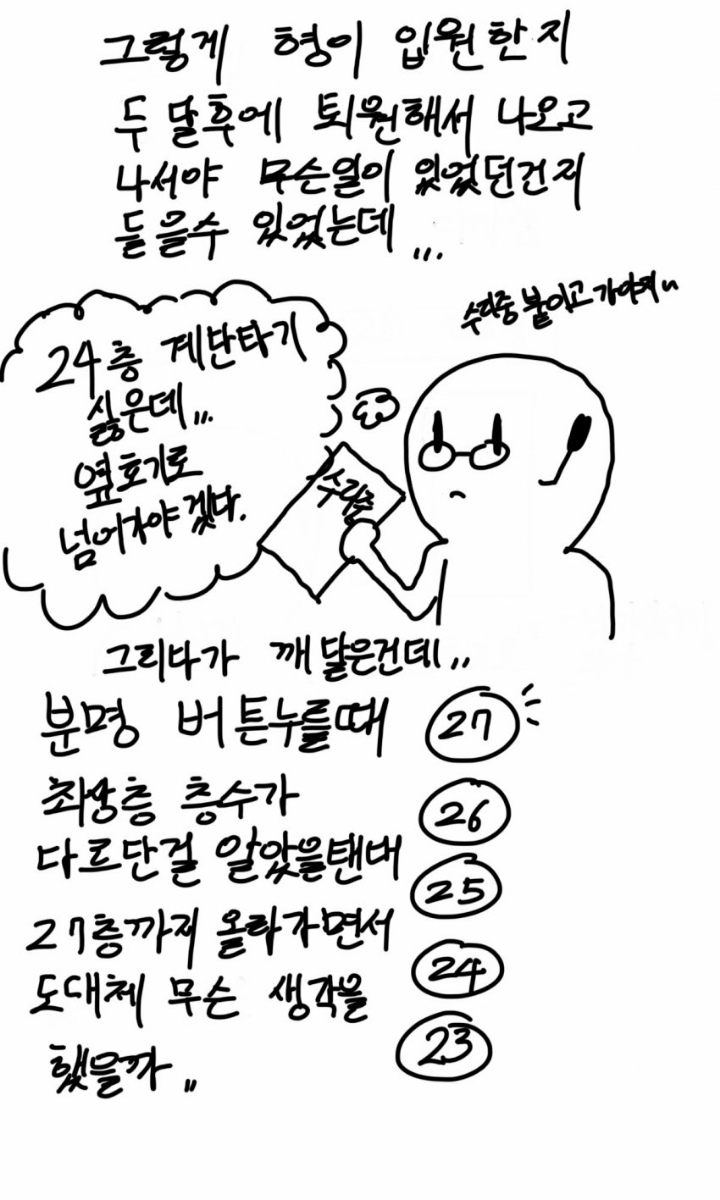 그렇게 형이 입원한지
두달후에 퇴원해서 나오고
나서야 무슨일이 있었던건지
들을수 있었는데...
수리중 붙이고 가야지~
24층 계단타기
싫은데...
옆호기로
넘어가야겠다.
수리중
그러다가 깨달은건데..
분명 버튼누를때
최상층 층수가
다르단걸 알았을탠대
27층까지 올라가면서
도대체 무슨 생각을
했을까..
27
26
25
24
23